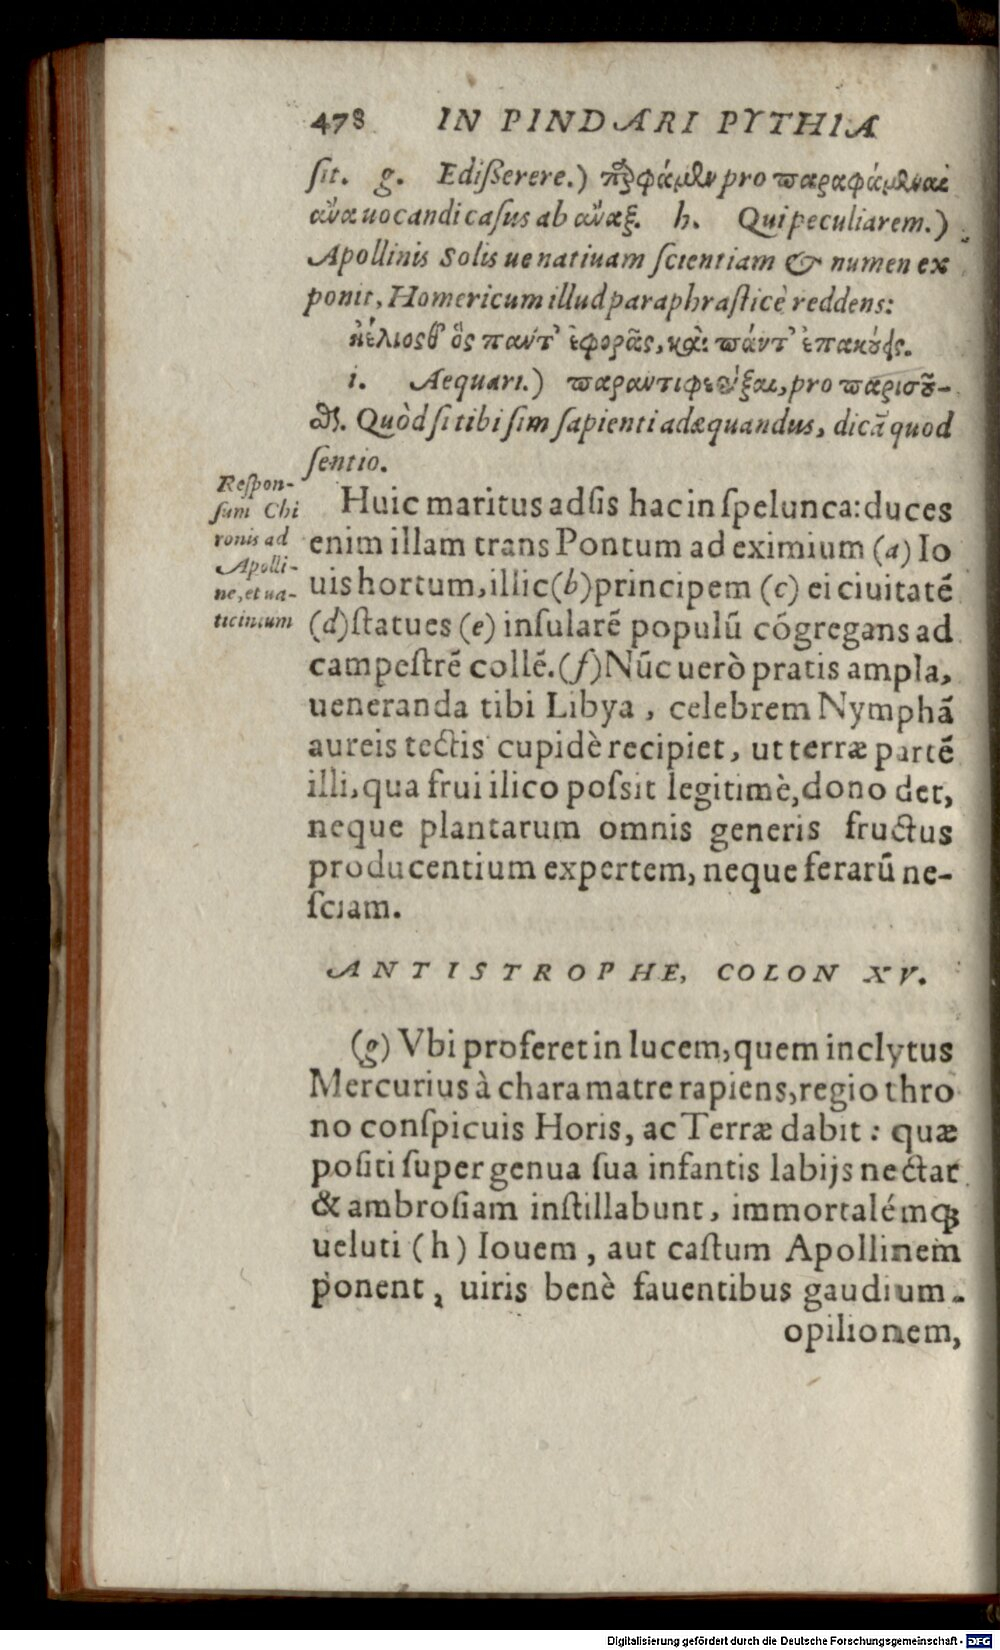 478 IN PINDARI PYTHIA
ſit. g. Edißerere.) παρφάμεν pro παραφάμεναι
ἄνα uocandi caſus ab ἄναξ. h. Qui peculiarem.)
Apollinis Solis ue natiuam ſcientiam & numen ex
ponit, Homericum illud paraphraſticè reddens:
ἠέλιος θ' ὃς παντ' ἐφορᾶς, καὶ πάντ' ἐπακούεις.
i. Aequari.) παραντιφερίξαι, pro παρισοῦ-
σθαι. Quòd ſi tibi ſim ſapienti adæquandus, dicā quod
ſentio.
Reſpon-
ſum Chi
ronis ad
Apolli-
ne, et ua-
ticinium
Huic maritus adſis hac in ſpelunca: duces
enim illam trans Pontum ad eximium (a) Io
uis hortum, illic (b) principem (c) ei ciuitatē
(d) ſtatues (e) inſularē populū cógregans ad
campeſtrē collē. (f) Nūc uerò pratis ampla,
ueneranda tibi Libya, celebrem Nymphā
aureis tectis cupidè recipiet, ut terræ partē
illi, qua frui ilico poſsit legitimè, dono det,
neque plantarum omnis generis fructus
producentium expertem, neque ferarū ne-
ſciam.
ANTISTROPHE, COLON XV.
(g) Vbi proferet in lucem, quem inclytus
Mercurius à chara matre rapiens, regio thro
no conſpicuis Horis, ac Terræ dabit: quæ
poſiti ſuper genua ſua infantis labijs nectar
& ambroſiam inſtillabunt, immortalémq́ꝫ
ueluti (h) Iouem, aut caſtum Apollinem
ponent, uiris benè fauentibus gaudium.
opilionem,
Digitalisierung gefördert durch die Deutsche Forschungsgemeinschaft - DFG